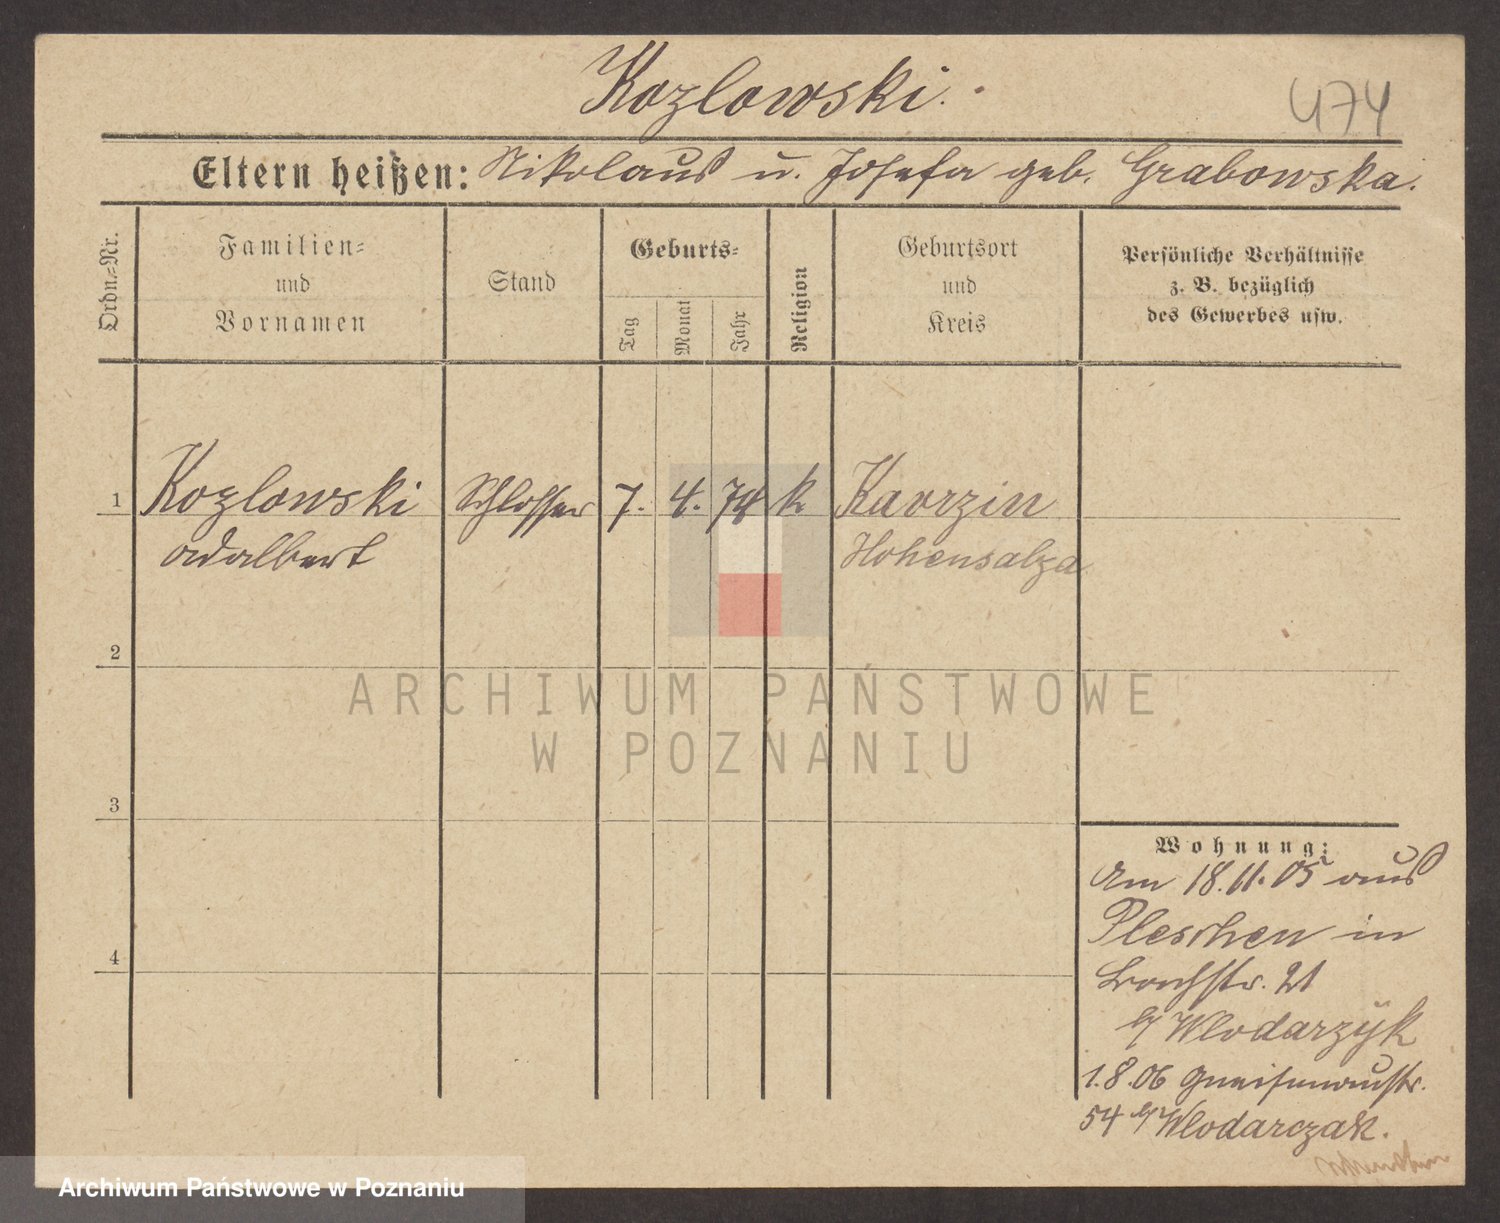 Kozlowski.
474
Eltern heißen: Nikolaus u. Josefa geb. Grabowska.
Ordn.-Nr.
Familien-
und
Vornamen
Stand
Geburts-
Tag
Monat
Jahr
Religion
Geburtsort
und
Kreis
Persönliche Verhältnisse
z. B. bezüglich
des Gewerbes usw.
1 Kozlowski Schlosser 7. 4. 74 k. Kavrzin
Adalbert Hohensalza
2
ARCHIWUM PAŃSTWOWE
W POZNANIU
3
4
Wohnung:
Am 18.11.05 aus
Pleschen in
21
b/ Wlodarzÿk
1.8.06 Gneisenaustr.
54 b/ Wlodarczak.
Archiwum Państwowe w Poznaniu